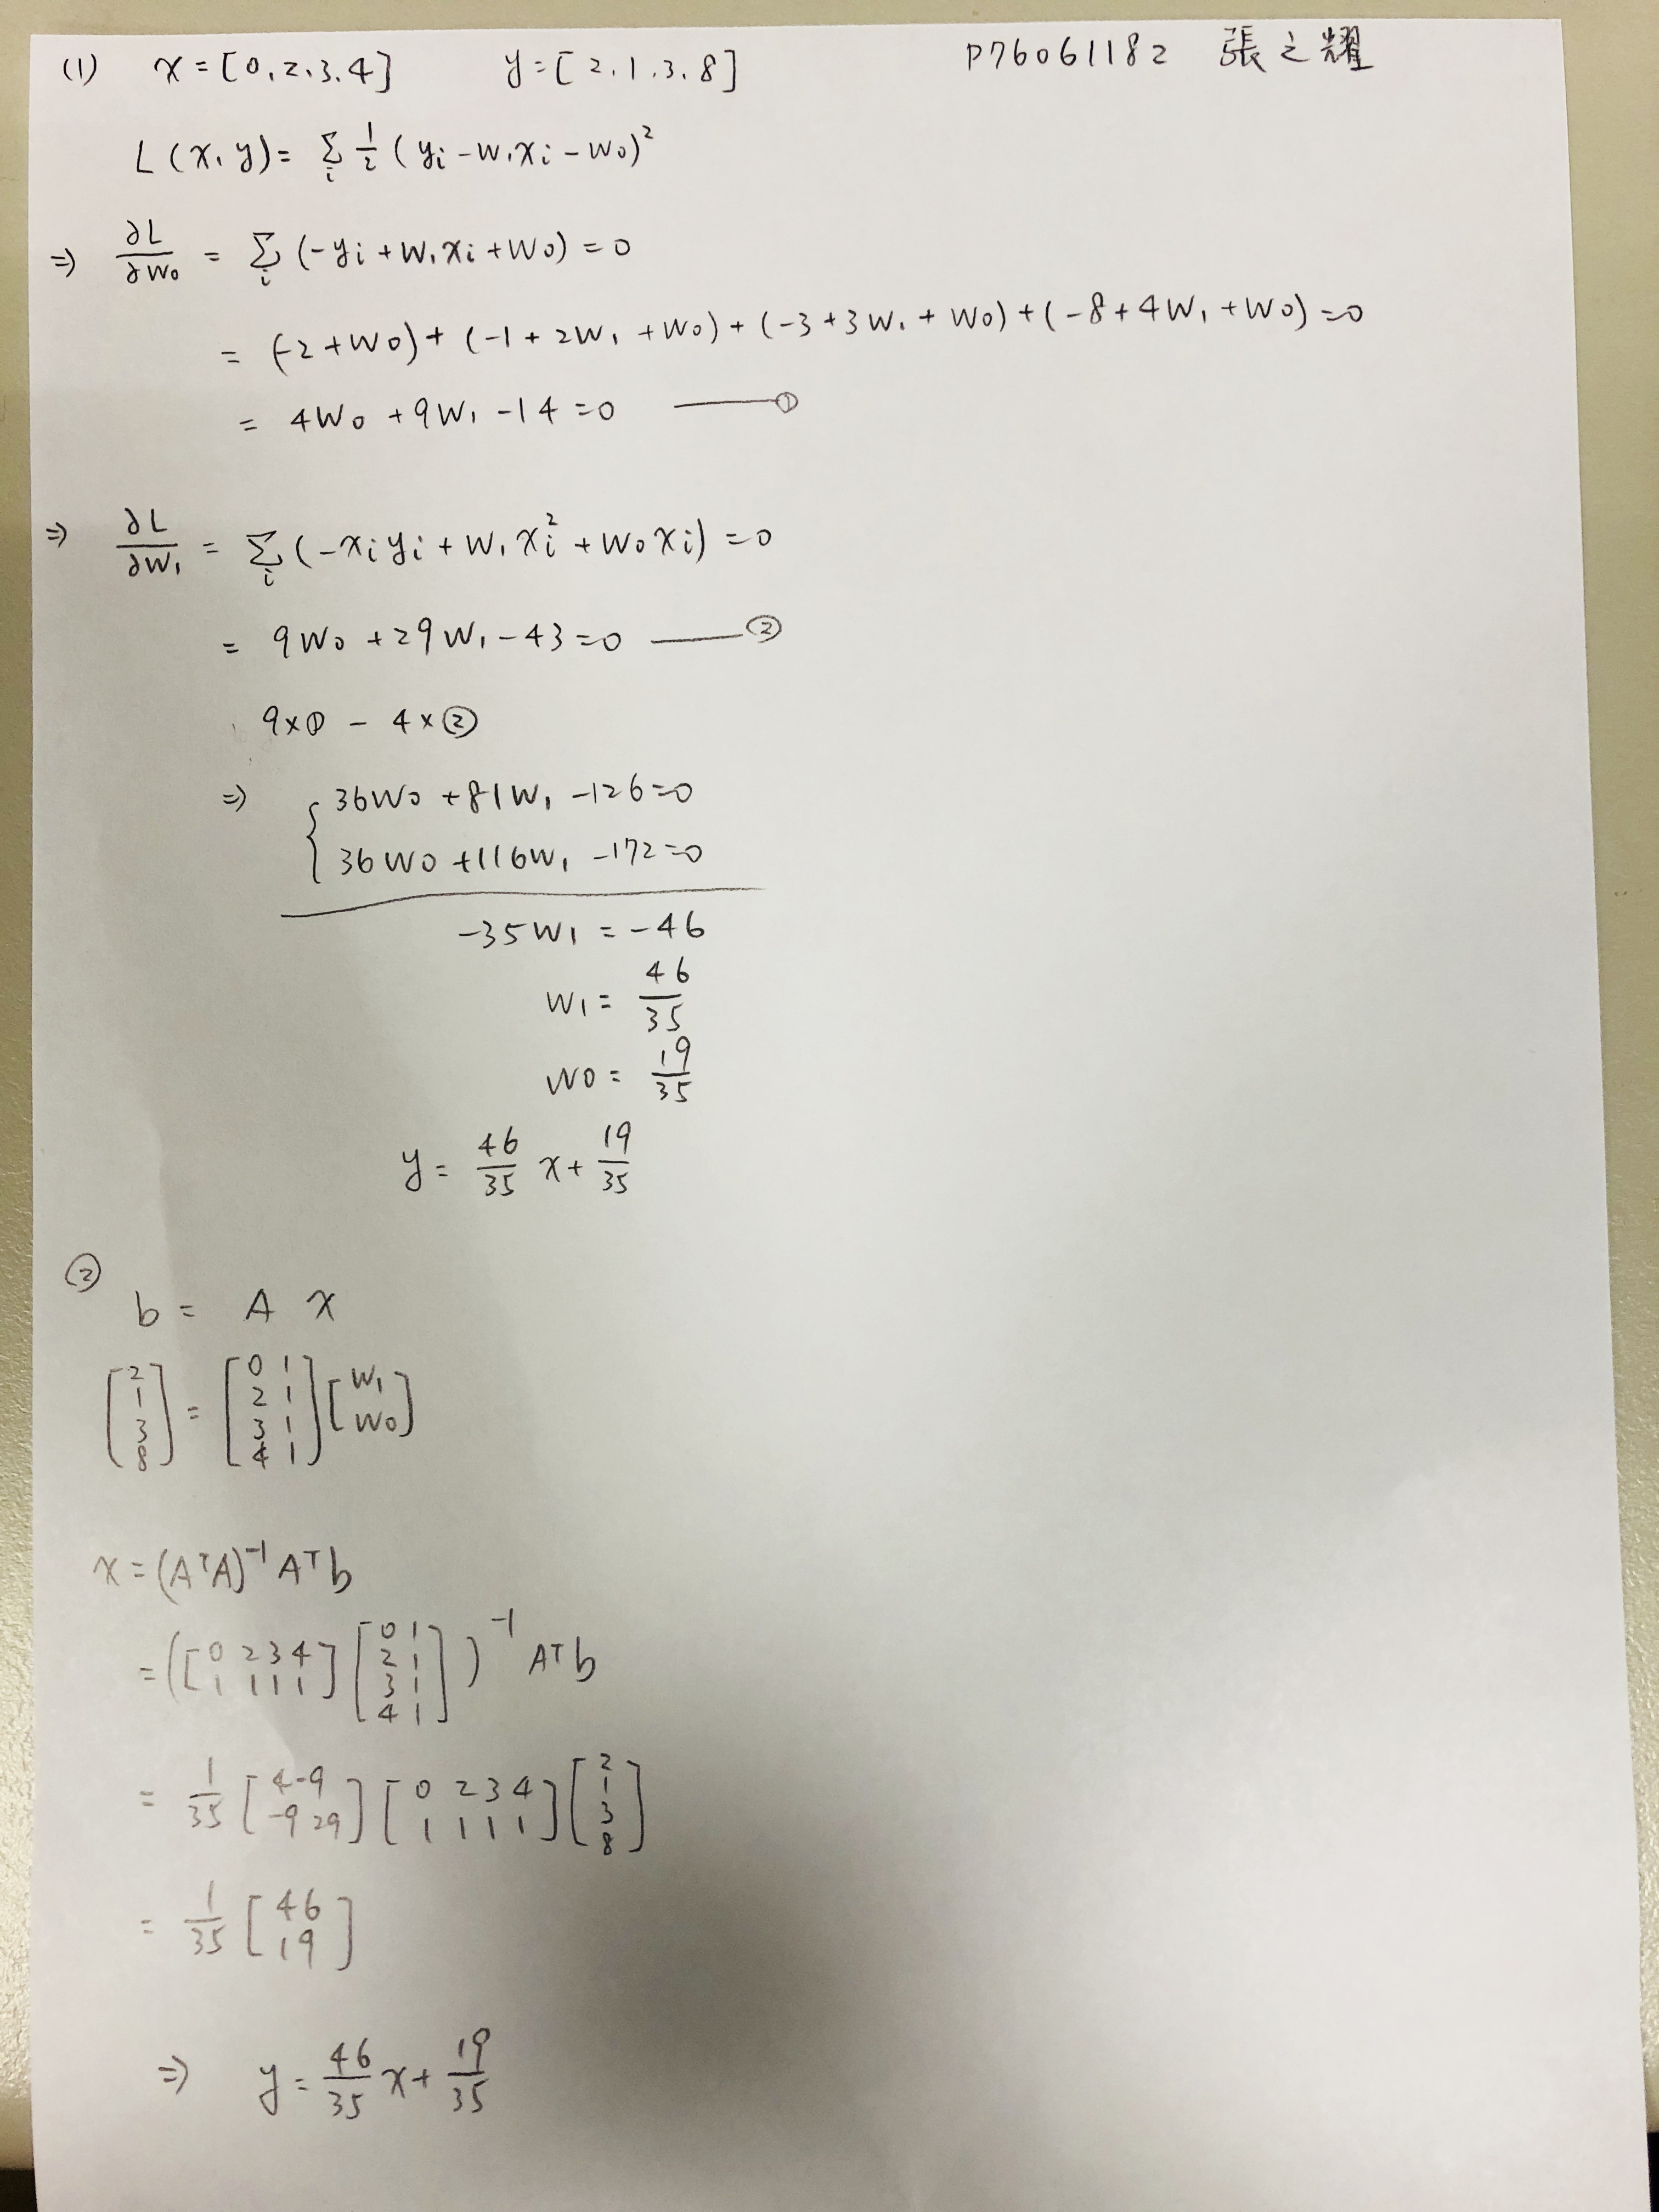 (1) x = [0, 2, 3, 4] y = [2, 1, 3, 8] P76061182 張之耀
L(x, y) = Σ_i 1/2 (y_i - w_1 x_i - w_0)^2
⇒ ∂L/∂w_0 = Σ_i (-y_i + w_1 x_i + w_0) = 0
= (-2 + w_0) + (-1 + 2w_1 + w_0) + (-3 + 3w_1 + w_0) + (-8 + 4w_1 + w_0) = 0
= 4w_0 + 9w_1 - 14 = 0 —— ①
⇒ ∂L/∂w_1 = Σ_i (-x_i y_i + w_1 x_i^2 + w_0 x_i) = 0
= 9w_0 + 29w_1 - 43 = 0 —— ②
9 × ① - 4 × ②
⇒ { 36w_0 + 81w_1 - 126 = 0
36w_0 + 116w_1 - 172 = 0
-35w_1 = -46
w_1 = 46/35
w_0 = 19/35
y = 46/35 x + 19/35
②
b = A x
[2 1 3 8] = [0 1 2 1 3 1 4 1] [w_1 w_0]
x = (A^T A)^-1 A^T b
= ([0 2 3 4 1 1 1 1] [0 1 2 1 3 1 4 1])^-1 A^T b
= 1/35 [4 -9 -9 29] [0 2 3 4 1 1 1 1] [2 1 3 8]
= 1/35 [46 19]
⇒ y = 46/35 x + 19/35